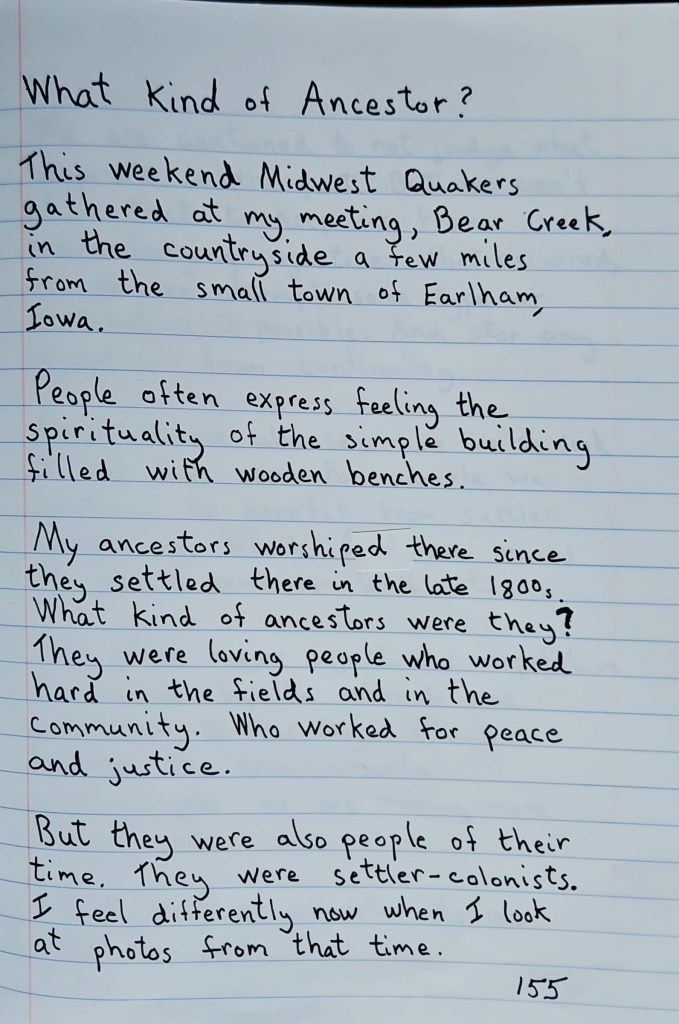 What Kind of Ancestor?
This weekend Midwest Quakers
gathered at my meeting, Bear Creek,
in the countryside a few miles
from the small town of Earlham,
Iowa.
People often express feeling the
spirituality of the simple building
filled with wooden benches.
My ancestors worshiped there since
they settled there in the late 1800s.
What kind of ancestors were they?
They were loving people who worked
hard in the fields and in the
community. Who worked for peace
and justice.
But they were also people of their
time. They were settler-colonists.
I feel differently now when I look
at photos from that time.
155